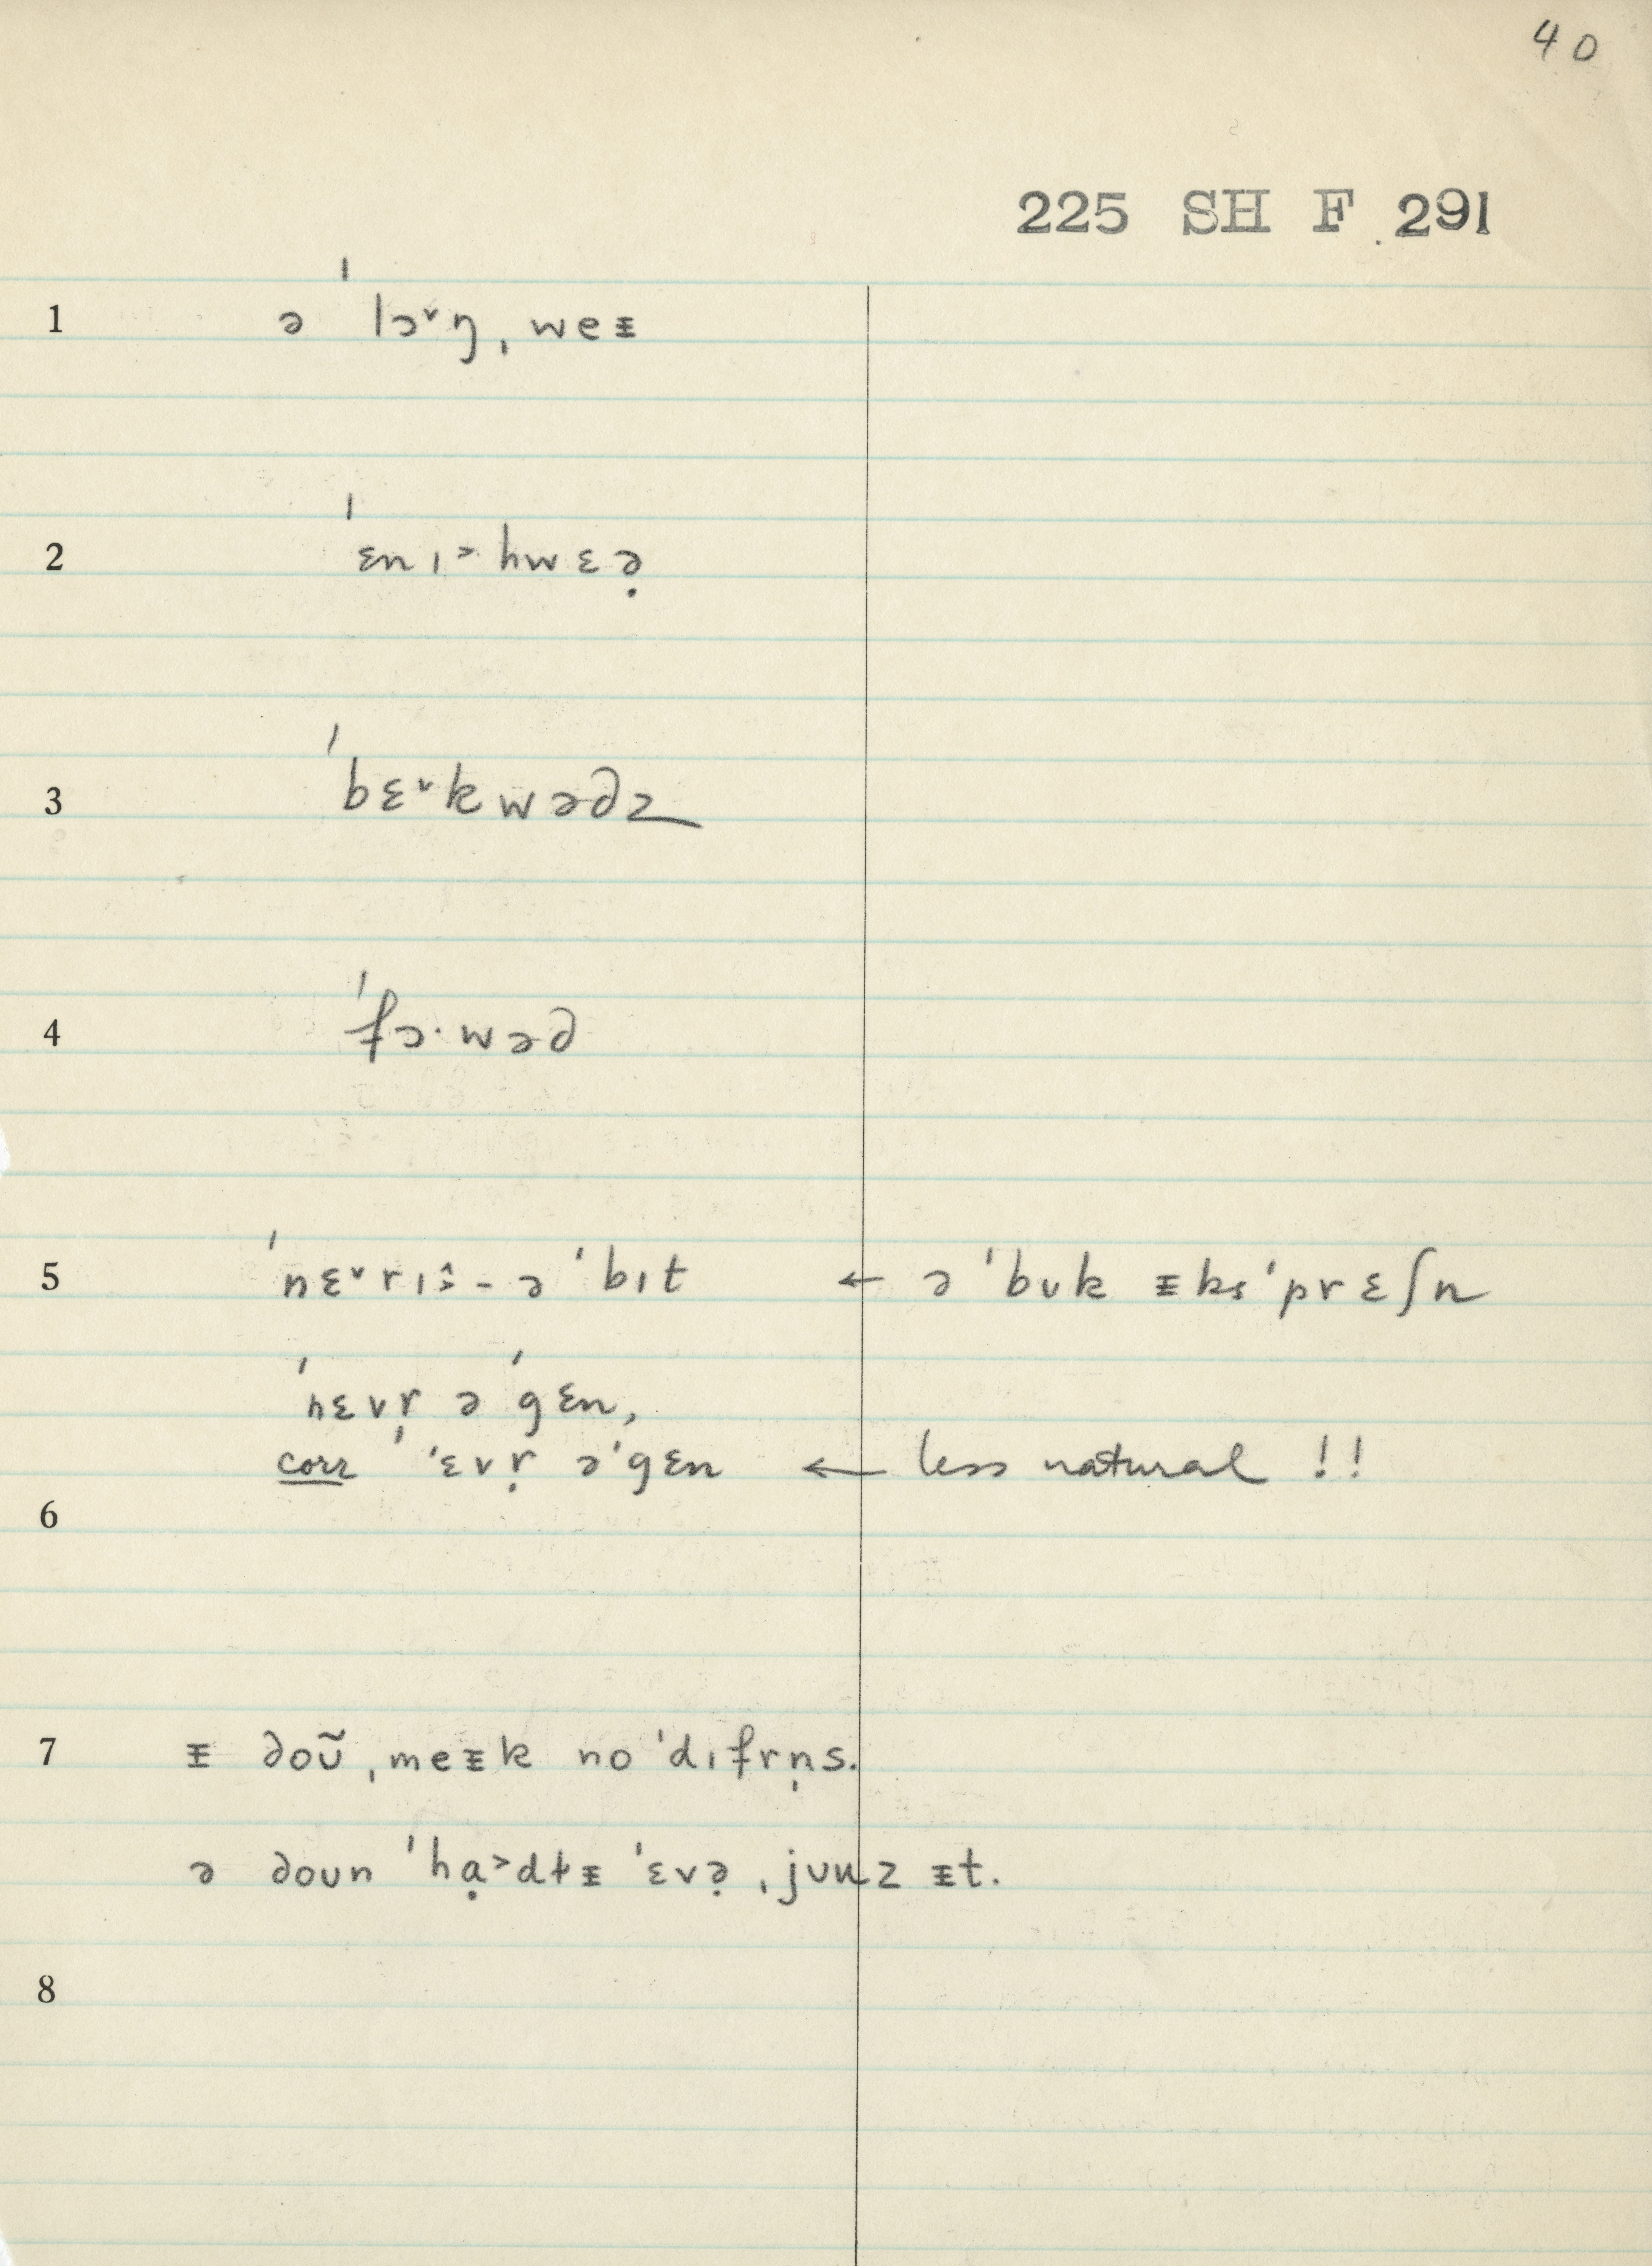 40
225 SH F 291
1 ə ˈlɔ˅ŋ ˌweᵻ
2 ˈɛnɪ˃hwɛə̣
3 ˈbɛ˅kwədz
4 ˈfɔ·wəd
5 ˈnɛ˅rɪ˄˃ - ə ˈbɪt ← ə ˈbʊk ᵻksˈprɛʃn
ˈnɛvr̩ əˈgɛn,
corr ˈɛvr̩ əˈgɛn ← less natural !!
6
7 ᵻ doʊ̃ ˌmeᵻk no ˈdɪfrn̩s.
ə doʊn ˈhɑ̣˃dɫᵻ ˈɛvə̣ ˌjuuz ᵻt.
8